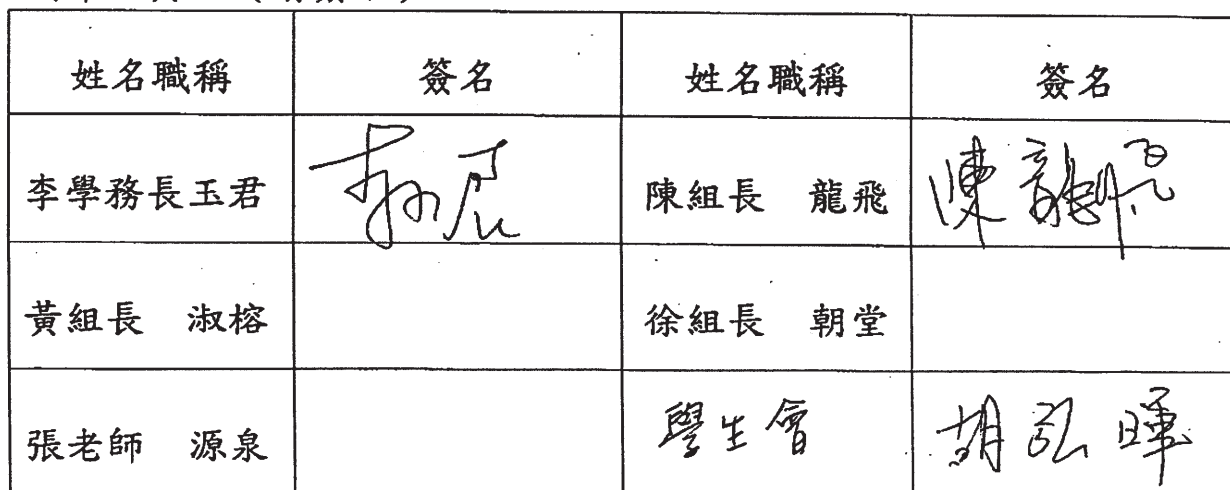 姓名職稱 簽名 姓名職稱 簽名
李學務長玉君 陳組長 龍飛 陳龍飛
黃組長 淑榕 徐組長 朝堂
張老師 源泉 學生會 胡弘暉